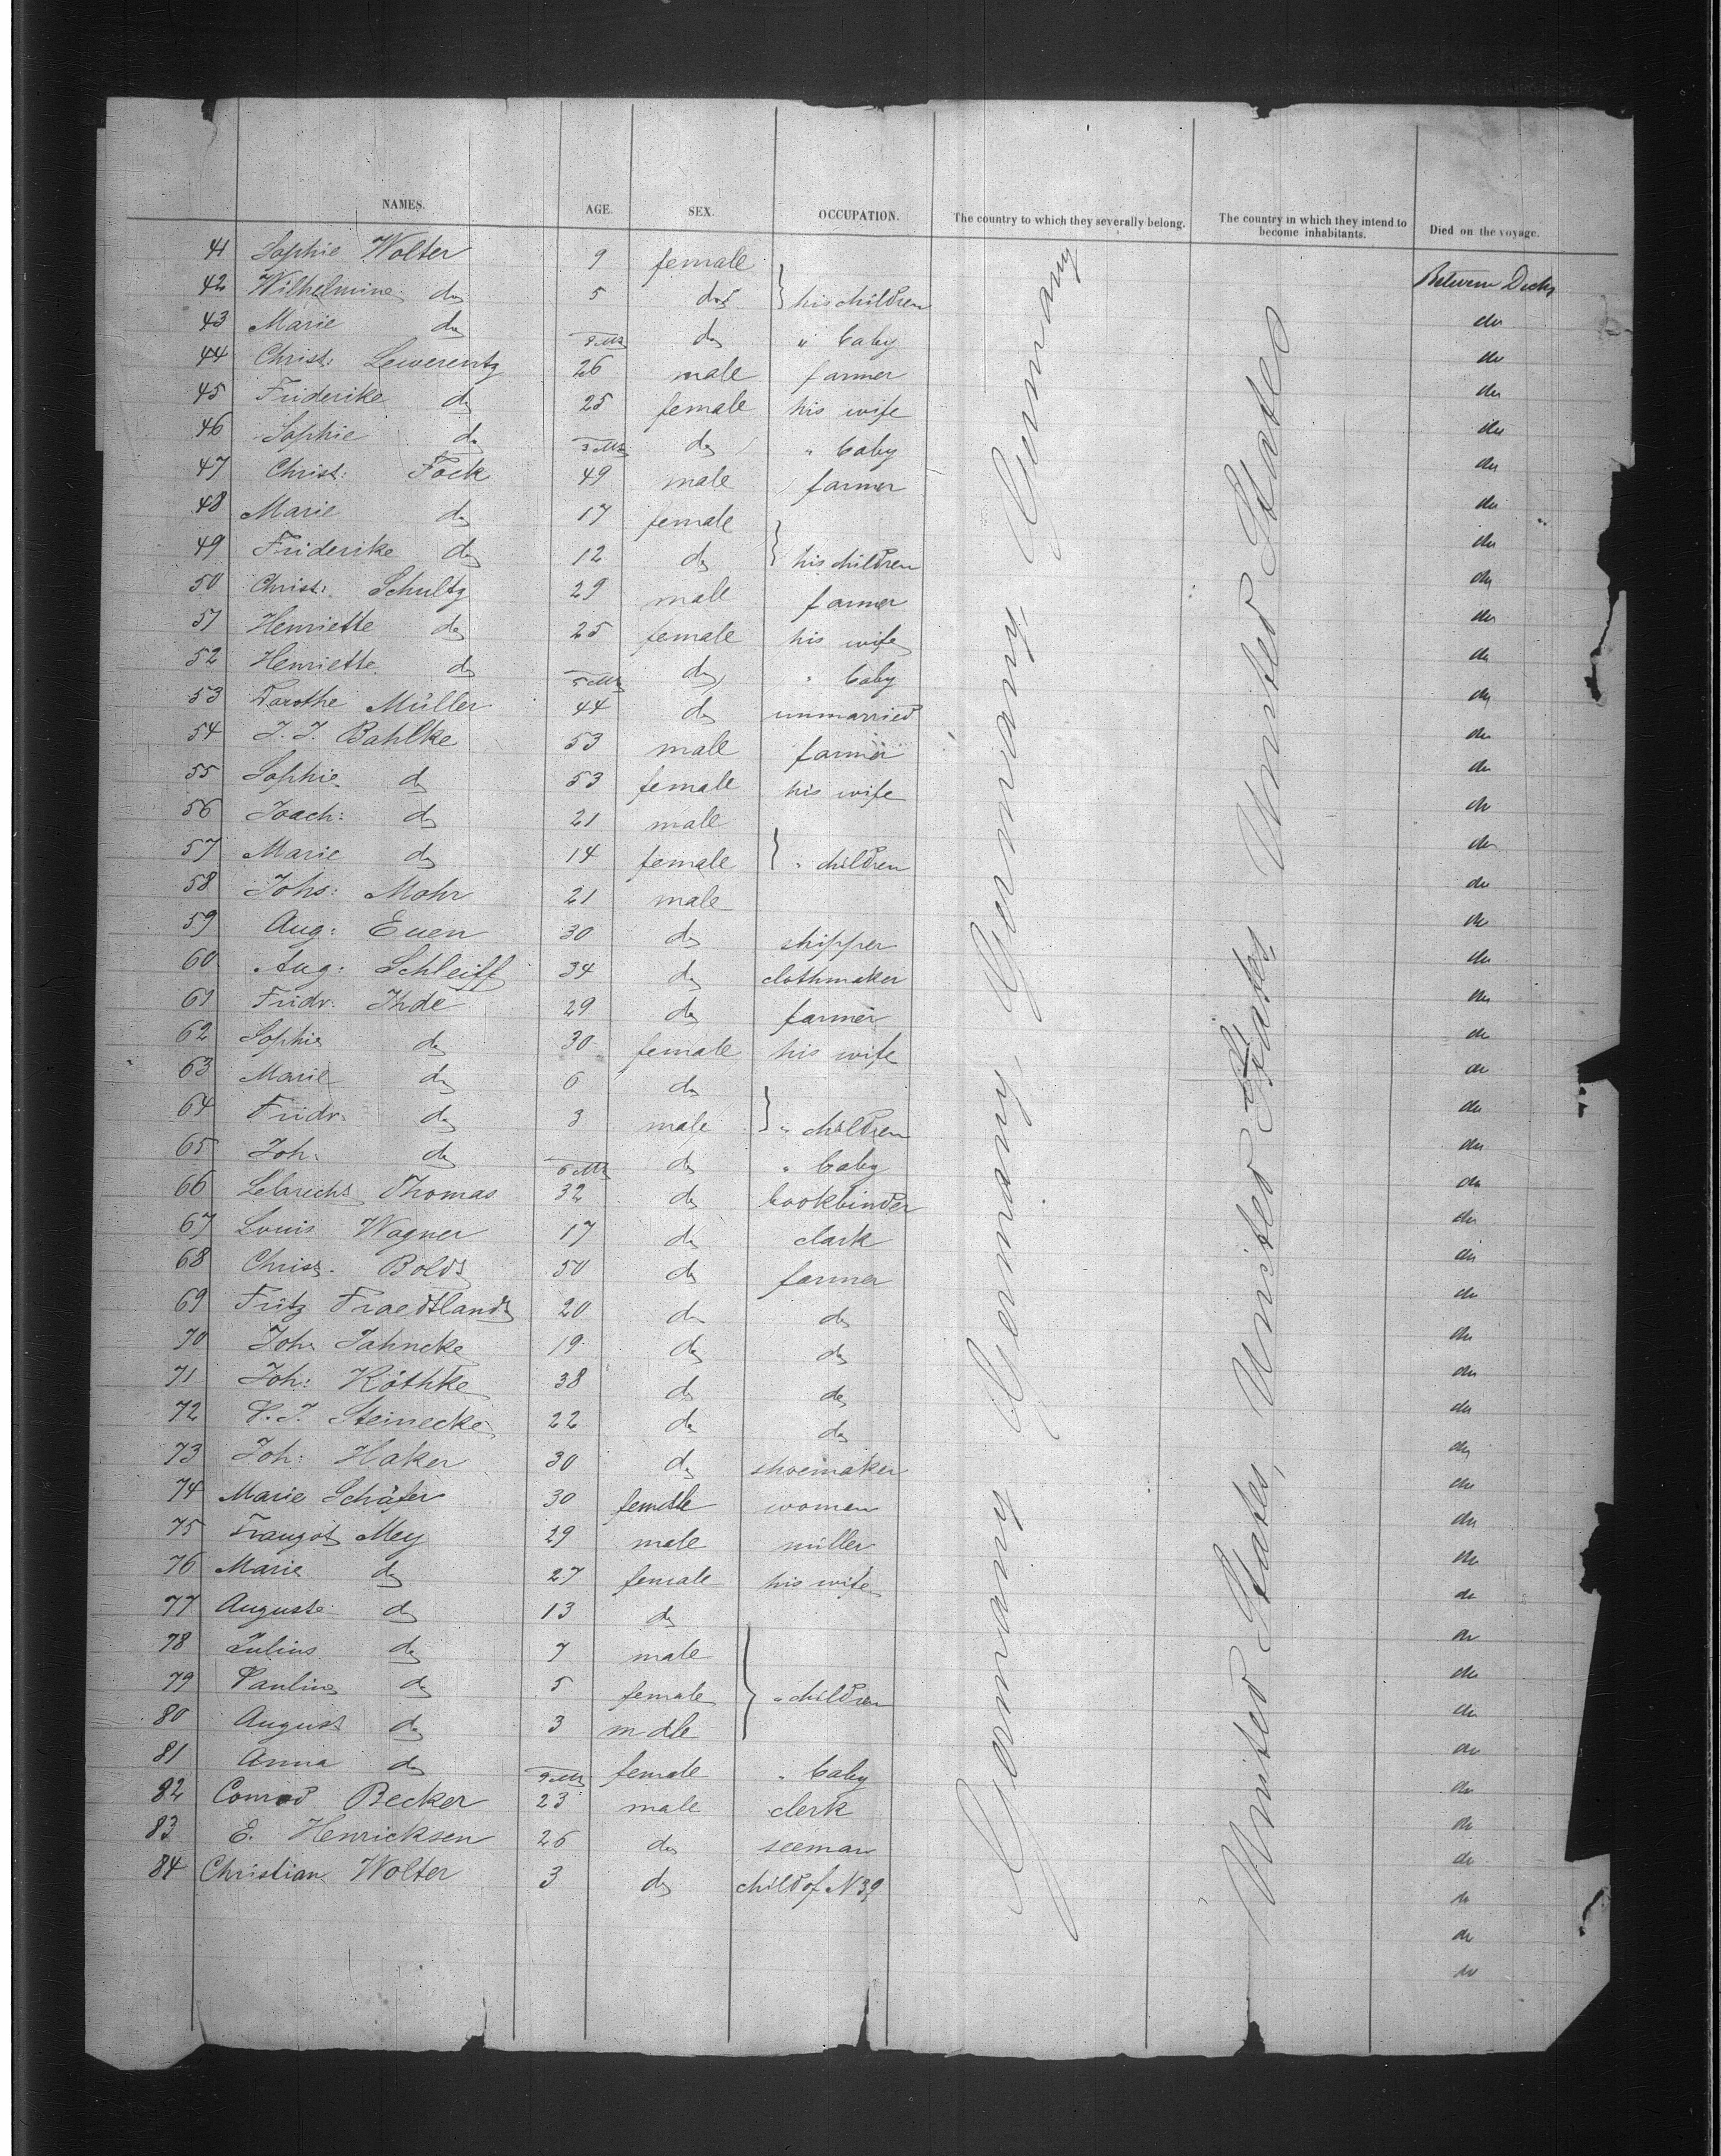 NAMES. AGE. SEX. OCCUPATION. The country to which they severally belong. The country in which they intend to become inhabitants. Died on the voyage.
41 Sophie Wolter 9 female Between Decks
42 Wilhelmine do 5 do } his children do
43 Marie do 8 Ms do " baby do
44 Christ: Lewerentz 26 male farmer do
45 Friderike do 25 female his wife do
46 Sophie do 3 Ms do " baby do
47 Christ: Fock 49 male farmer do
48 Marie do 17 female do
49 Friderike do 12 do } his children do
50 Christ: Schultz 29 male farmer do
51 Henriette do 25 female his wife do
52 Henriette do 5 Ms do " baby do
53 Dorothe Müller 44 do unmarried do
54 J. J. Bahlke 53 male farmer do
55 Sophie do 53 female his wife do
56 Joach: do 21 male do
57 Marie do 14 female } " children do
58 Johs: Mohr 21 male do
59 Aug: Euen 30 do shipper do
60 Aug: Schleiff 34 do clothmaker do
61 Fridr: Ihde 29 do farmer do
62 Sophie do 30 female his wife do
63 Marie do 6 do do
64 Fridr. do 3 male } " children do
65 Joh: do 6 Ms do " baby do
66 Lebrecht Thomas 32 do bookbinder do
67 Louis Wagner 17 do clark do
68 Christ. Boldt 50 do farmer do
69 Fritz Fraedtlandt 20 do do do
70 Joh: Jahncke 19 do do do
71 Joh: Köthke 38 do do do
72 P. J. Steinecke 22 do do do
73 Joh: Haker 30 do shoemaker do
74 Marie Schäfer 30 female woman do
75 Traugot Mey 29 male müller do
76 Marie do 27 female his wife do
77 Auguste do 13 do do
78 Julius do 7 male do
79 Pauline do 5 female } " children do
80 August do 3 male do
81 Anna do 9 Ms female " baby do
82 Conrad Becker 23 male clerk do
83 E. Henricksen 26 do seeman do
84 Christian Wolter 3 do child of N 39 do
do
do
Germany Germany, Germany, Germany
United States, United States United States